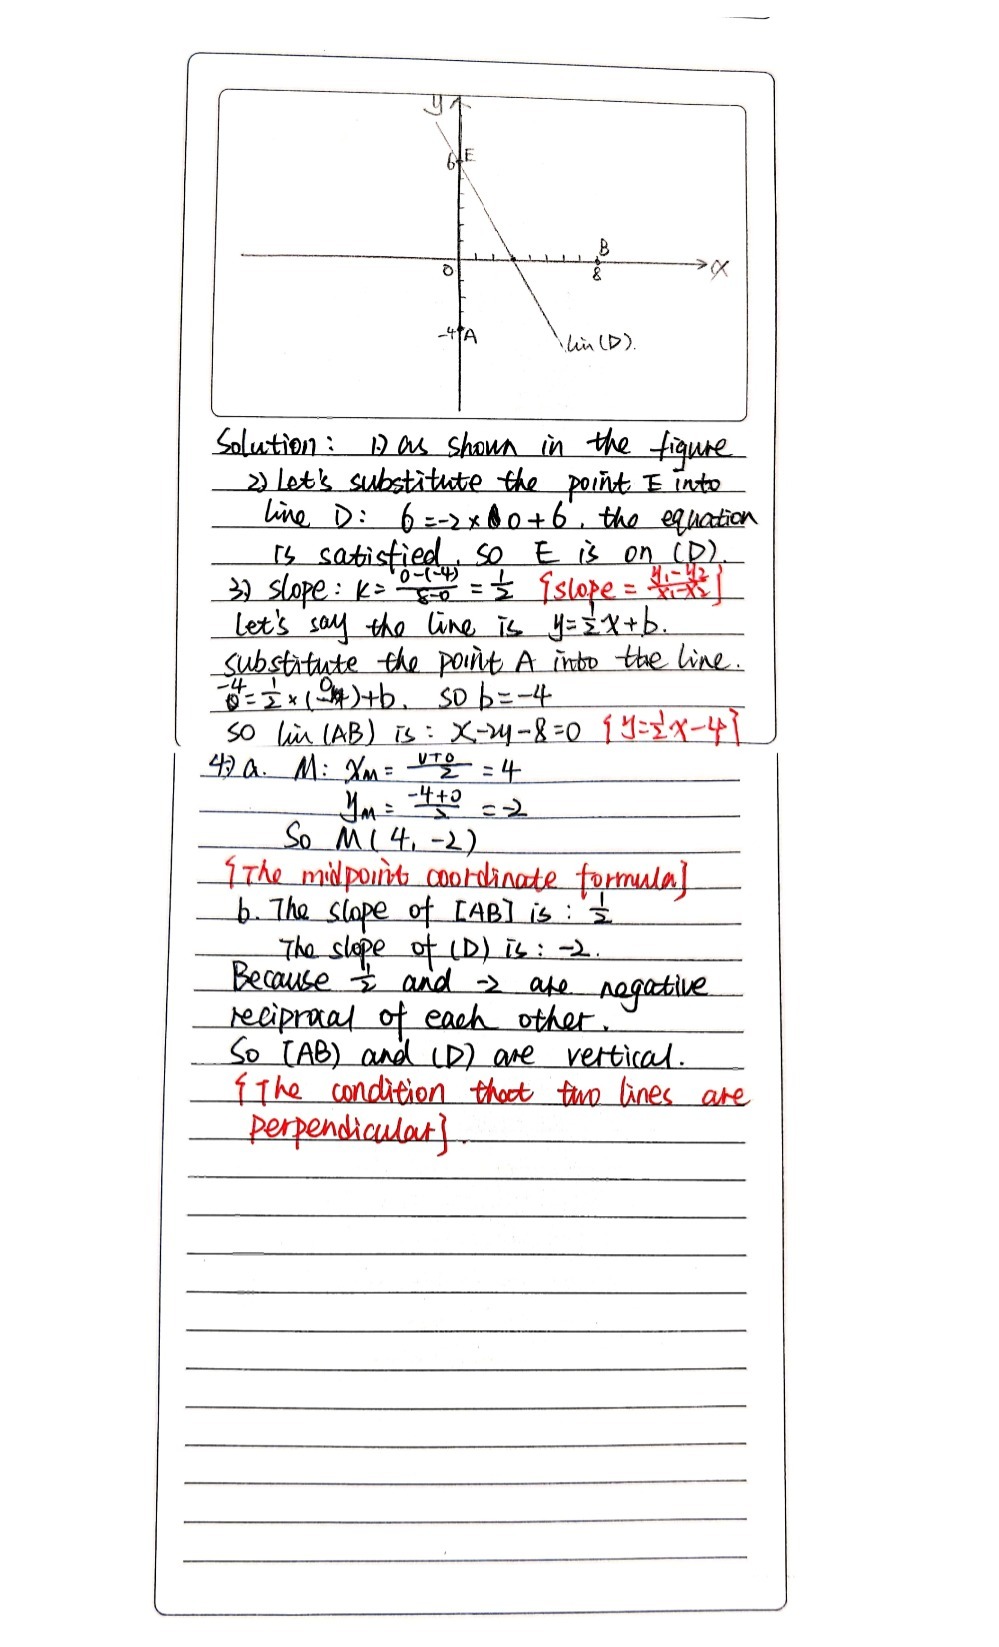 y
6 E
B
0 8 x
-4 A
lin (D).
Solution: 1) as shown in the figure
2) Let's substitute the point E into
line D: 6=-2×0+6, the equation
is satisfied, so E is on (D).
3) slope: k= 0-(-4)/8-0 = 1/2 {slope = y1-y2/x1-x2}
Let's say the line is y=1/2x+b.
substitute the point A into the line.
-4=1/2×(0)+b, so b=-4
so lin (AB) is: x-2y-8=0 {y=1/2x-4}
4) a. M: xM= /2 =4
yM= -4+0/2 =-2
So M(4, -2)
{The midpoint coordinate formula}
b. The slope of [AB] is: 1/2
The slope of (D) is: -2.
Because 1/2 and -2 are negative
reciprocal of each other.
So [AB) and (D) are vertical.
{The condition that two lines are
perpendicular}.